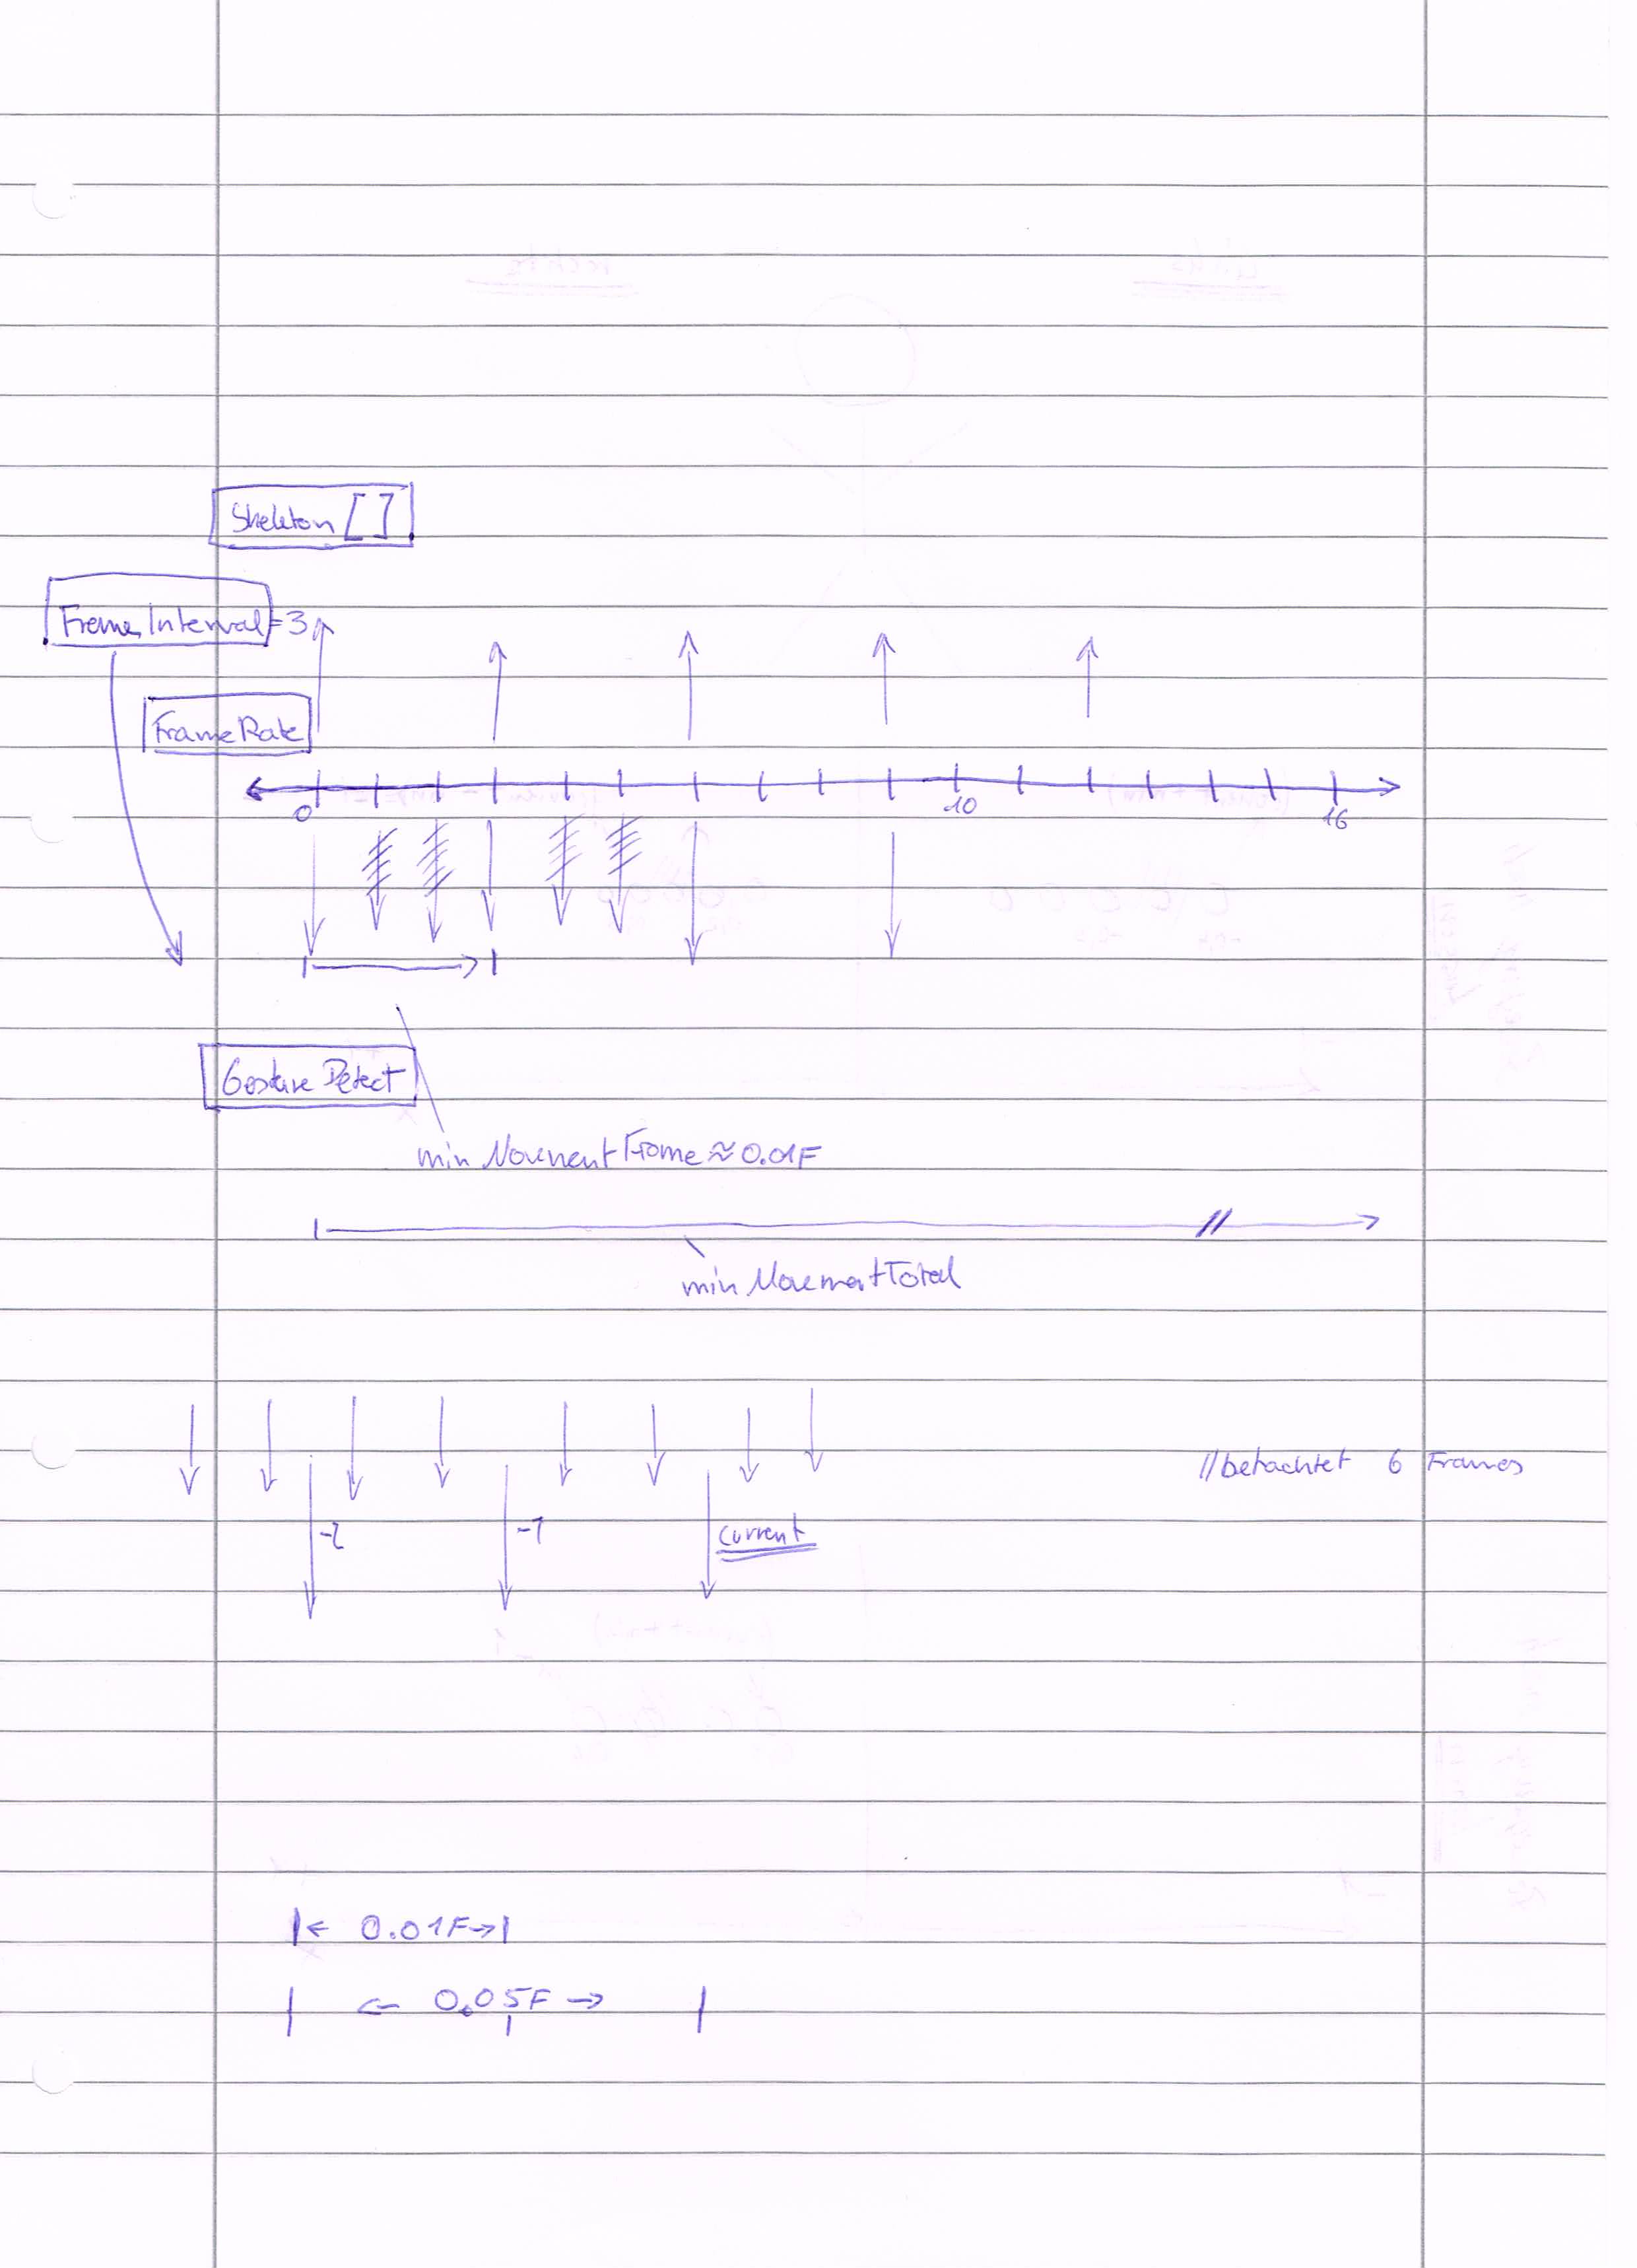 Skeleton []
Frame Interval = 3
FrameRate
0 10 16
Gesture Detect
min Movement Frame ≈ 0.01F
min MovementTotal
//betrachtet 6 Frames
-2 -1 current
0.01F
0.05F